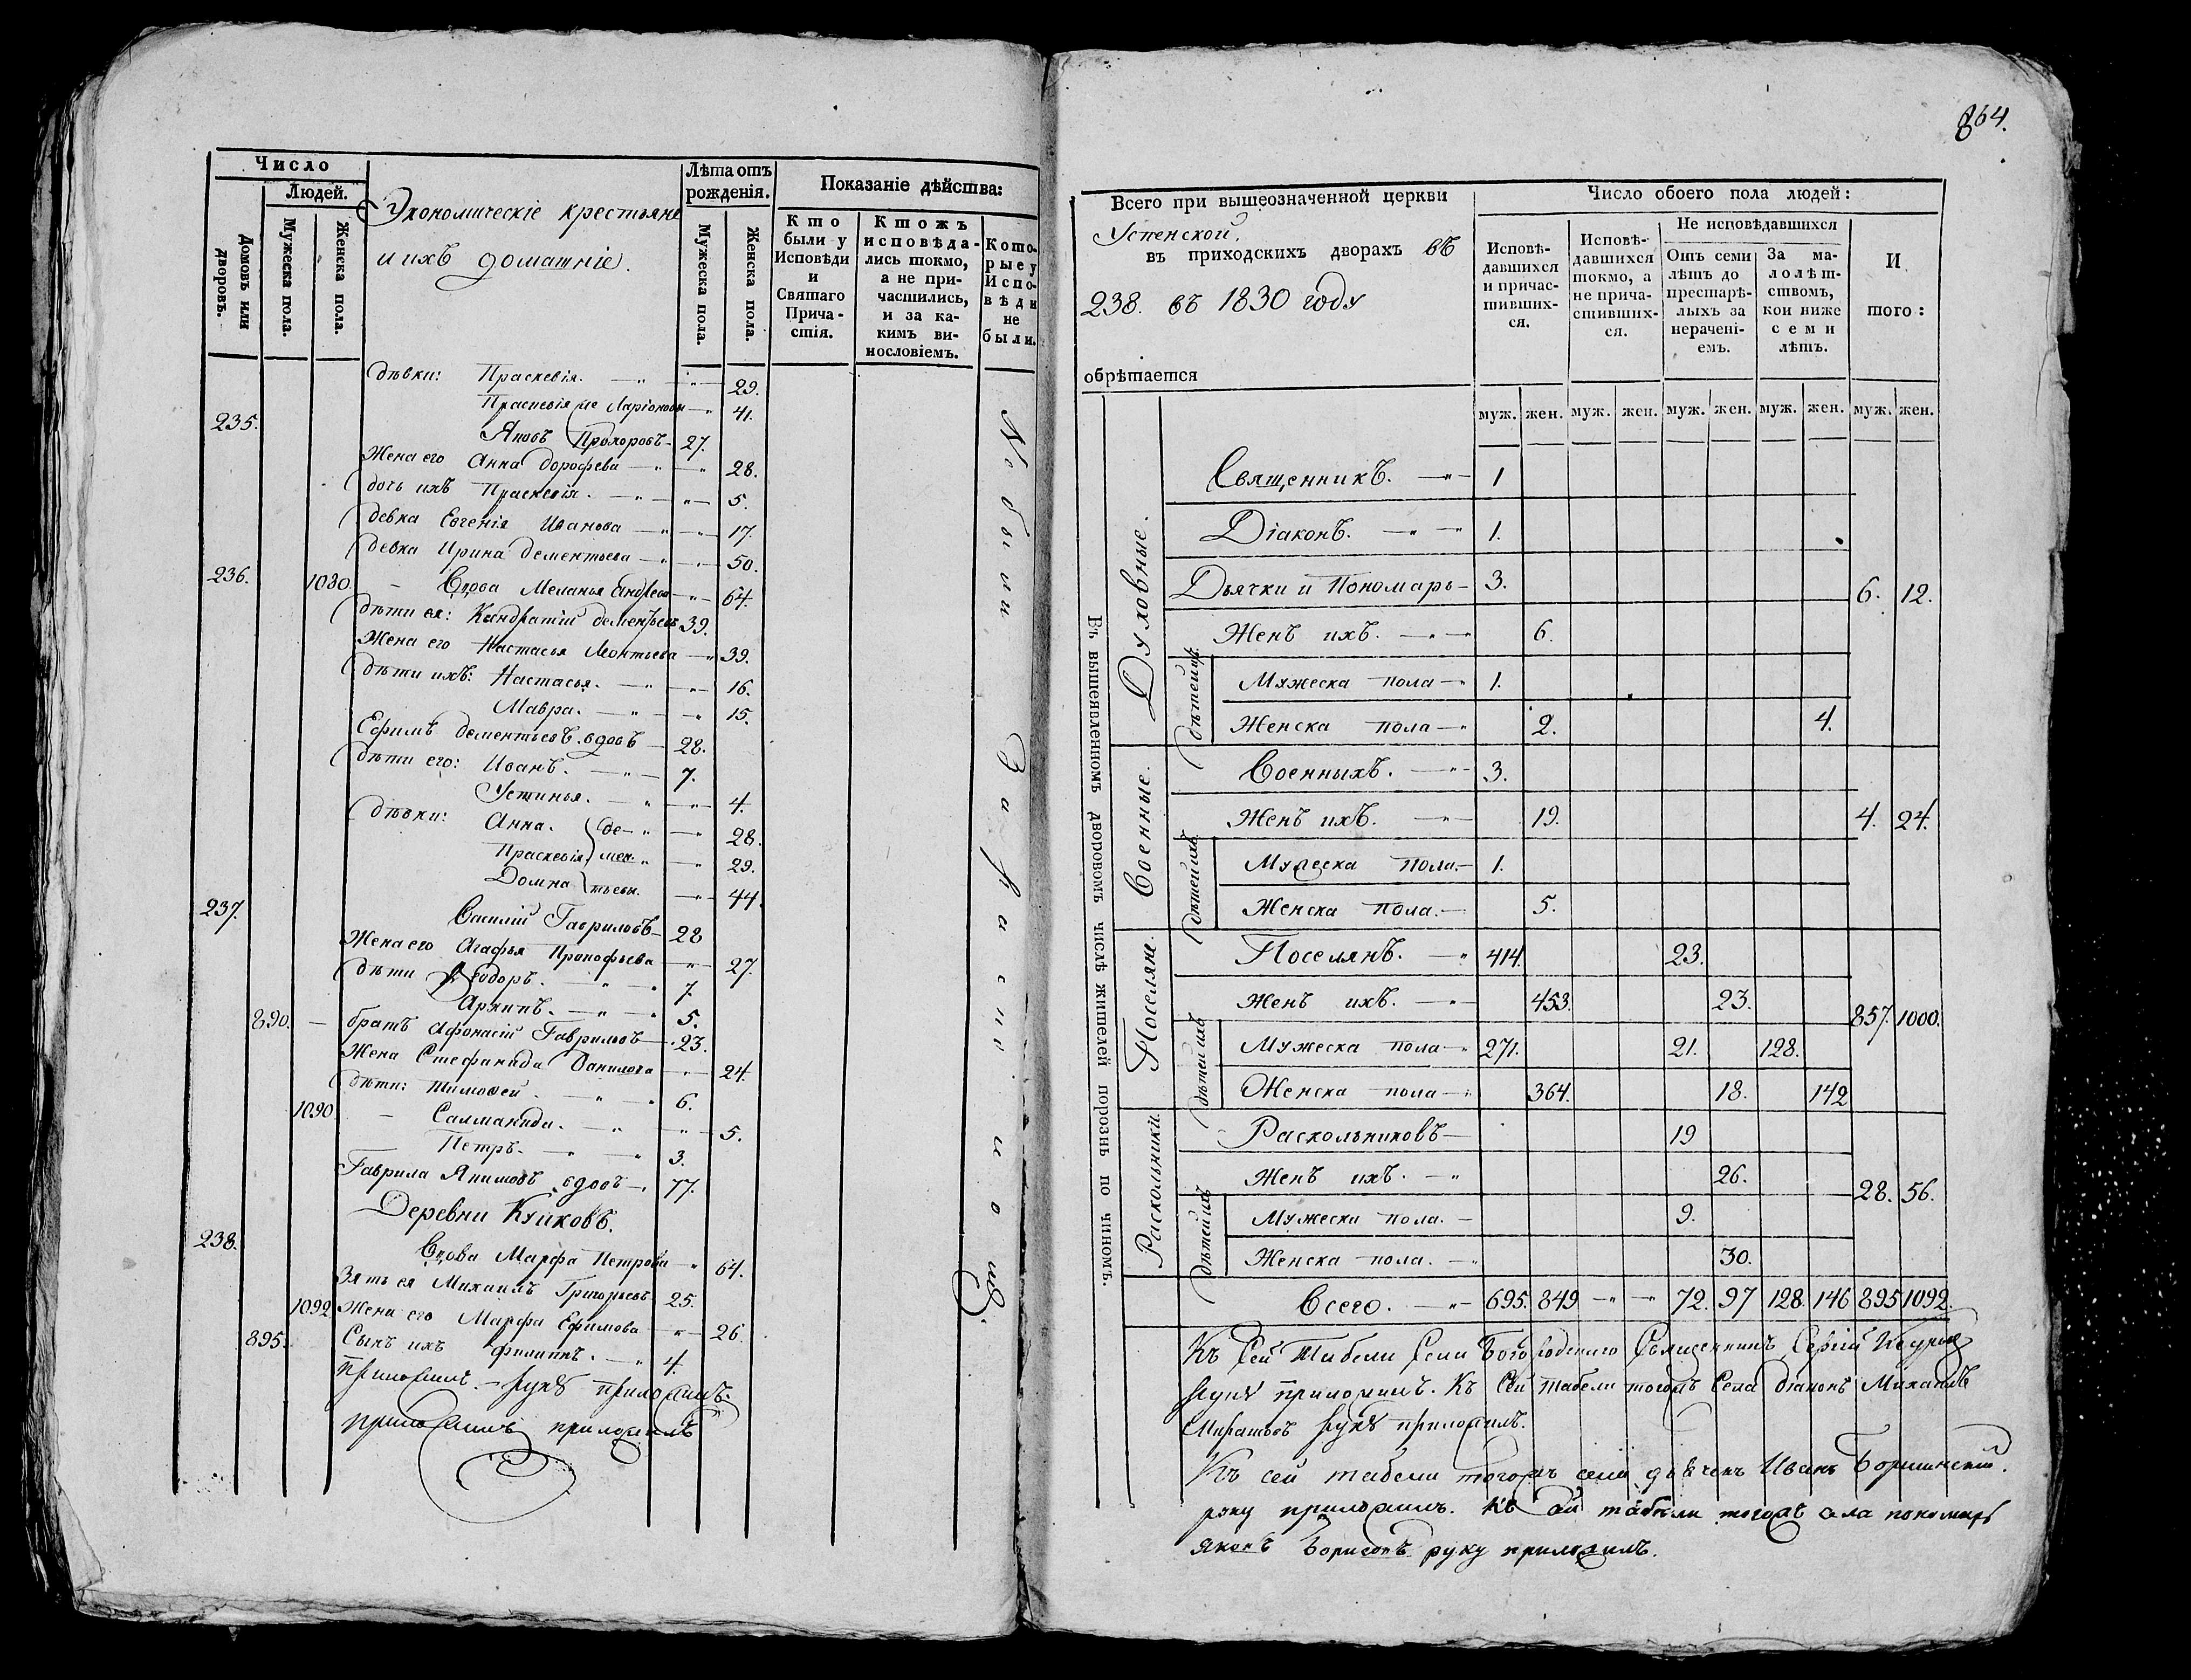 864.
Число
Людей.
Домовъ или дворовъ.
Мужеска пола.
Женска пола.
Экономическіе крестьяне
и ихъ домашніе.
Лѣта отъ рожденія.
Мужеска пола.
Женска пола.
Показаніе дѣйства:
Кто были у Исповѣди и Святаго Причастія.
Ктожъ исповѣдались токмо, а не причастились, и за какимъ винословіемъ.
Которые у Исповѣди не были.
дѣвки: Праскевія. 29.
Праскевія Ларіоновы 41.
235. Яковъ Прохоровъ 27.
Жена его Анна дорофеева 28.
дочь ихъ Праскевія. 5.
девка Евгенія Иванова 17.
девка Ирина дементьева 50.
236. 1030 Вдова Меланья Андреева 64.
дѣти ея: Кандратій дементьевъ 39.
Жена его Настасья Леонтьева 39.
дѣти ихъ: Настасья. 16.
Мавра. 15.
Ефимъ дементьевъ вдовъ 28.
дѣти его: Иванъ. 7.
Устинья. 4.
дѣвки: Анна. де- 28.
Праскевія мен- 29.
Домна тьевы. 44.
237. Василій Гавриловъ 28
Жена его Агафья Прокофьева 27.
дѣти Ѳеодоръ. 7.
Архипъ. 5.
890. братъ Афонасій Гавриловъ 23.
Жена Стефанида Данилова 24.
дѣти: Тимоѳей. 6.
1090 Салманида. 5.
Петръ. 3.
Гаврила Якимовъ вдовъ 77.
Деревни Куйковъ.
238. Вдова Марфа Петрова 64.
Зять ея Михаилъ Григорьевъ 25.
1092 Жена его Марфа Ефимова 26.
895. Сынъ ихъ Филиппъ. 4.
приложилъ. руку приложилъ.
приложилъ приложилъ
Всего при вышеозначенной церкви
Успенской,
въ приходскихъ дворахъ въ
238. въ 1830 году
обрѣтается
Число обоего пола людей:
Исповѣдавшихся и причастившихся.
Исповѣдавшихся токмо, а не причастившихся.
Не исповѣдавшихся
Отъ семи лѣтъ до престарѣлыхъ за нераченіемъ.
За малолѣтствомъ, кои ниже семи лѣтъ.
И того:
муж. жен. муж. жен. муж. жен. муж. жен. муж. жен.
Въ вышеявленномъ дворовомъ числѣ жителей порознь по чиномъ.
Духовные.
Священникъ. 1
Діаконъ. 1.
Дьячки и Пономарь 3. 6. 12.
Женъ ихъ. 6.
дѣтей их
Мужеска пола 1.
Женска пола 2. 4.
Военные.
Военныхъ. 3.
Женъ ихъ. 19. 4. 24.
дѣтей ихъ
Мужеска пола. 1.
Женска пола. 5.
Поселяне.
Поселянъ. 414. 23.
Женъ ихъ. 453. 23. 857. 1000.
дѣтей ихъ
Мужеска пола 271. 21. 128.
Женска пола 364. 18. 142
Раскольники.
Раскольниковъ 19
Женъ ихъ. 26. 28. 56.
дѣтей ихъ
Мужеска пола. 9.
Женска пола. 30.
Всего. 695. 849 72. 97 128. 146 895 1092.
Къ сей Табели Села Богородского Священникъ Сергій
руку приложилъ. Къ сей табели тогожъ Села діаконъ Михаилъ
руку приложилъ.
Къ сей табели тогожъ села дьячекъ Иванъ
руку приложилъ. Къ сей табели тогожъ села пономарь
Яковъ Борисовъ руку приложилъ.